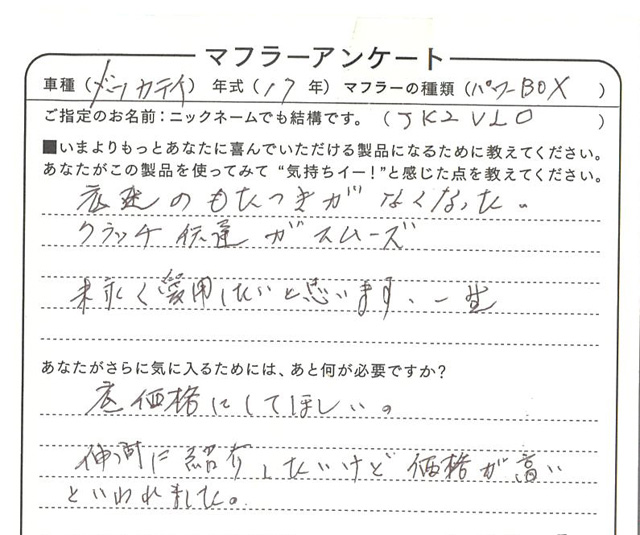 マフラーアンケート
車種（ 年式（17年）マフラーの種類（パワーBOX）
ご指定のお名前：ニックネームでも結構です。（JK2VLO）
■いまよりもっとあなたに喜んでいただける製品になるために教えてください。
あなたがこの製品を使ってみて“気持ちイー！”と感じた点を教えてください。
のもたつきがなくなった。
クラッチ伝達がスムーズ
末永く愛用したいと思います、一生
あなたがさらに気に入るためには、あと何が必要ですか？
底価格にしてほしい。
仲間に紹介したいけど価格が高い
といわれました。